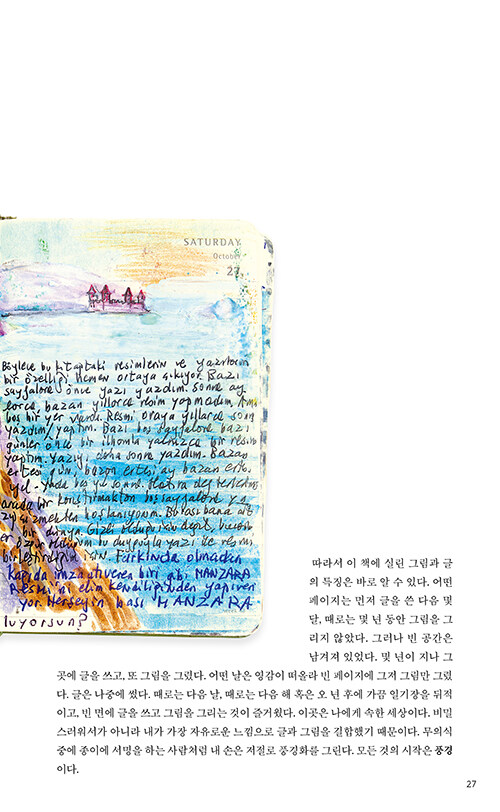 SATURDAY
October
27
Böylece bu kitaptaki resimlerin ve yazıların
bir özelliği hemen ortaya çıkıyor. Bazı
sayfalara önce yazı yazdım. Sonra ay
larca, bazan yıllarca resim yapmadım. Ama
boş bir yer vardı. Resmi oraya yıllarca sonra
yazdım/yaptım. Bazı boş sayfalara bazı
günler önce bir ilhamla yalnızca bir resim
yaptım. Yazıyı daha sonra yazdım. Bazan
ertesi gün, bazan ertesi ay bazan ertesi
yıl - yada beş yıl sonra. Hatıra defterlerini
arada bir karıştırmaktan boş sayfalara ya
zıp çizmekten hoşlanıyorum. Burası bana ait
bir dünya. Gizli olduğu için değil,
özgür olduğum bu duyguyla yazı ile resmi
birleştirdiğim için. Farkında olmadan
kağıda imza atıveren biri gibi MANZARA
Resmi'ni elim kendiliğinden yapıver
yor. Herşeyin başı MANZARA
luyorsun?
따라서 이 책에 실린 그림과 글
의 특징은 바로 알 수 있다. 어떤
페이지는 먼저 글을 쓴 다음 몇
달, 때로는 몇 년 동안 그림을 그
리지 않았다. 그러나 빈 공간은
남겨져 있었다. 몇 년이 지나 그
곳에 글을 쓰고, 또 그림을 그렸다. 어떤 날은 영감이 떠올라 빈 페이지에 그저 그림만 그렸
다. 글은 나중에 썼다. 때로는 다음 날, 때로는 다음 해 혹은 오 년 후에 가끔 일기장을 뒤적
이고, 빈 면에 글을 쓰고 그림을 그리는 것이 즐거웠다. 이곳은 나에게 속한 세상이다. 비밀
스러워서가 아니라 내가 가장 자유로운 느낌으로 글과 그림을 결합했기 때문이다. 무의식
중에 종이에 서명을 하는 사람처럼 내 손은 저절로 풍경화를 그린다. 모든 것의 시작은 풍경
이다.
27